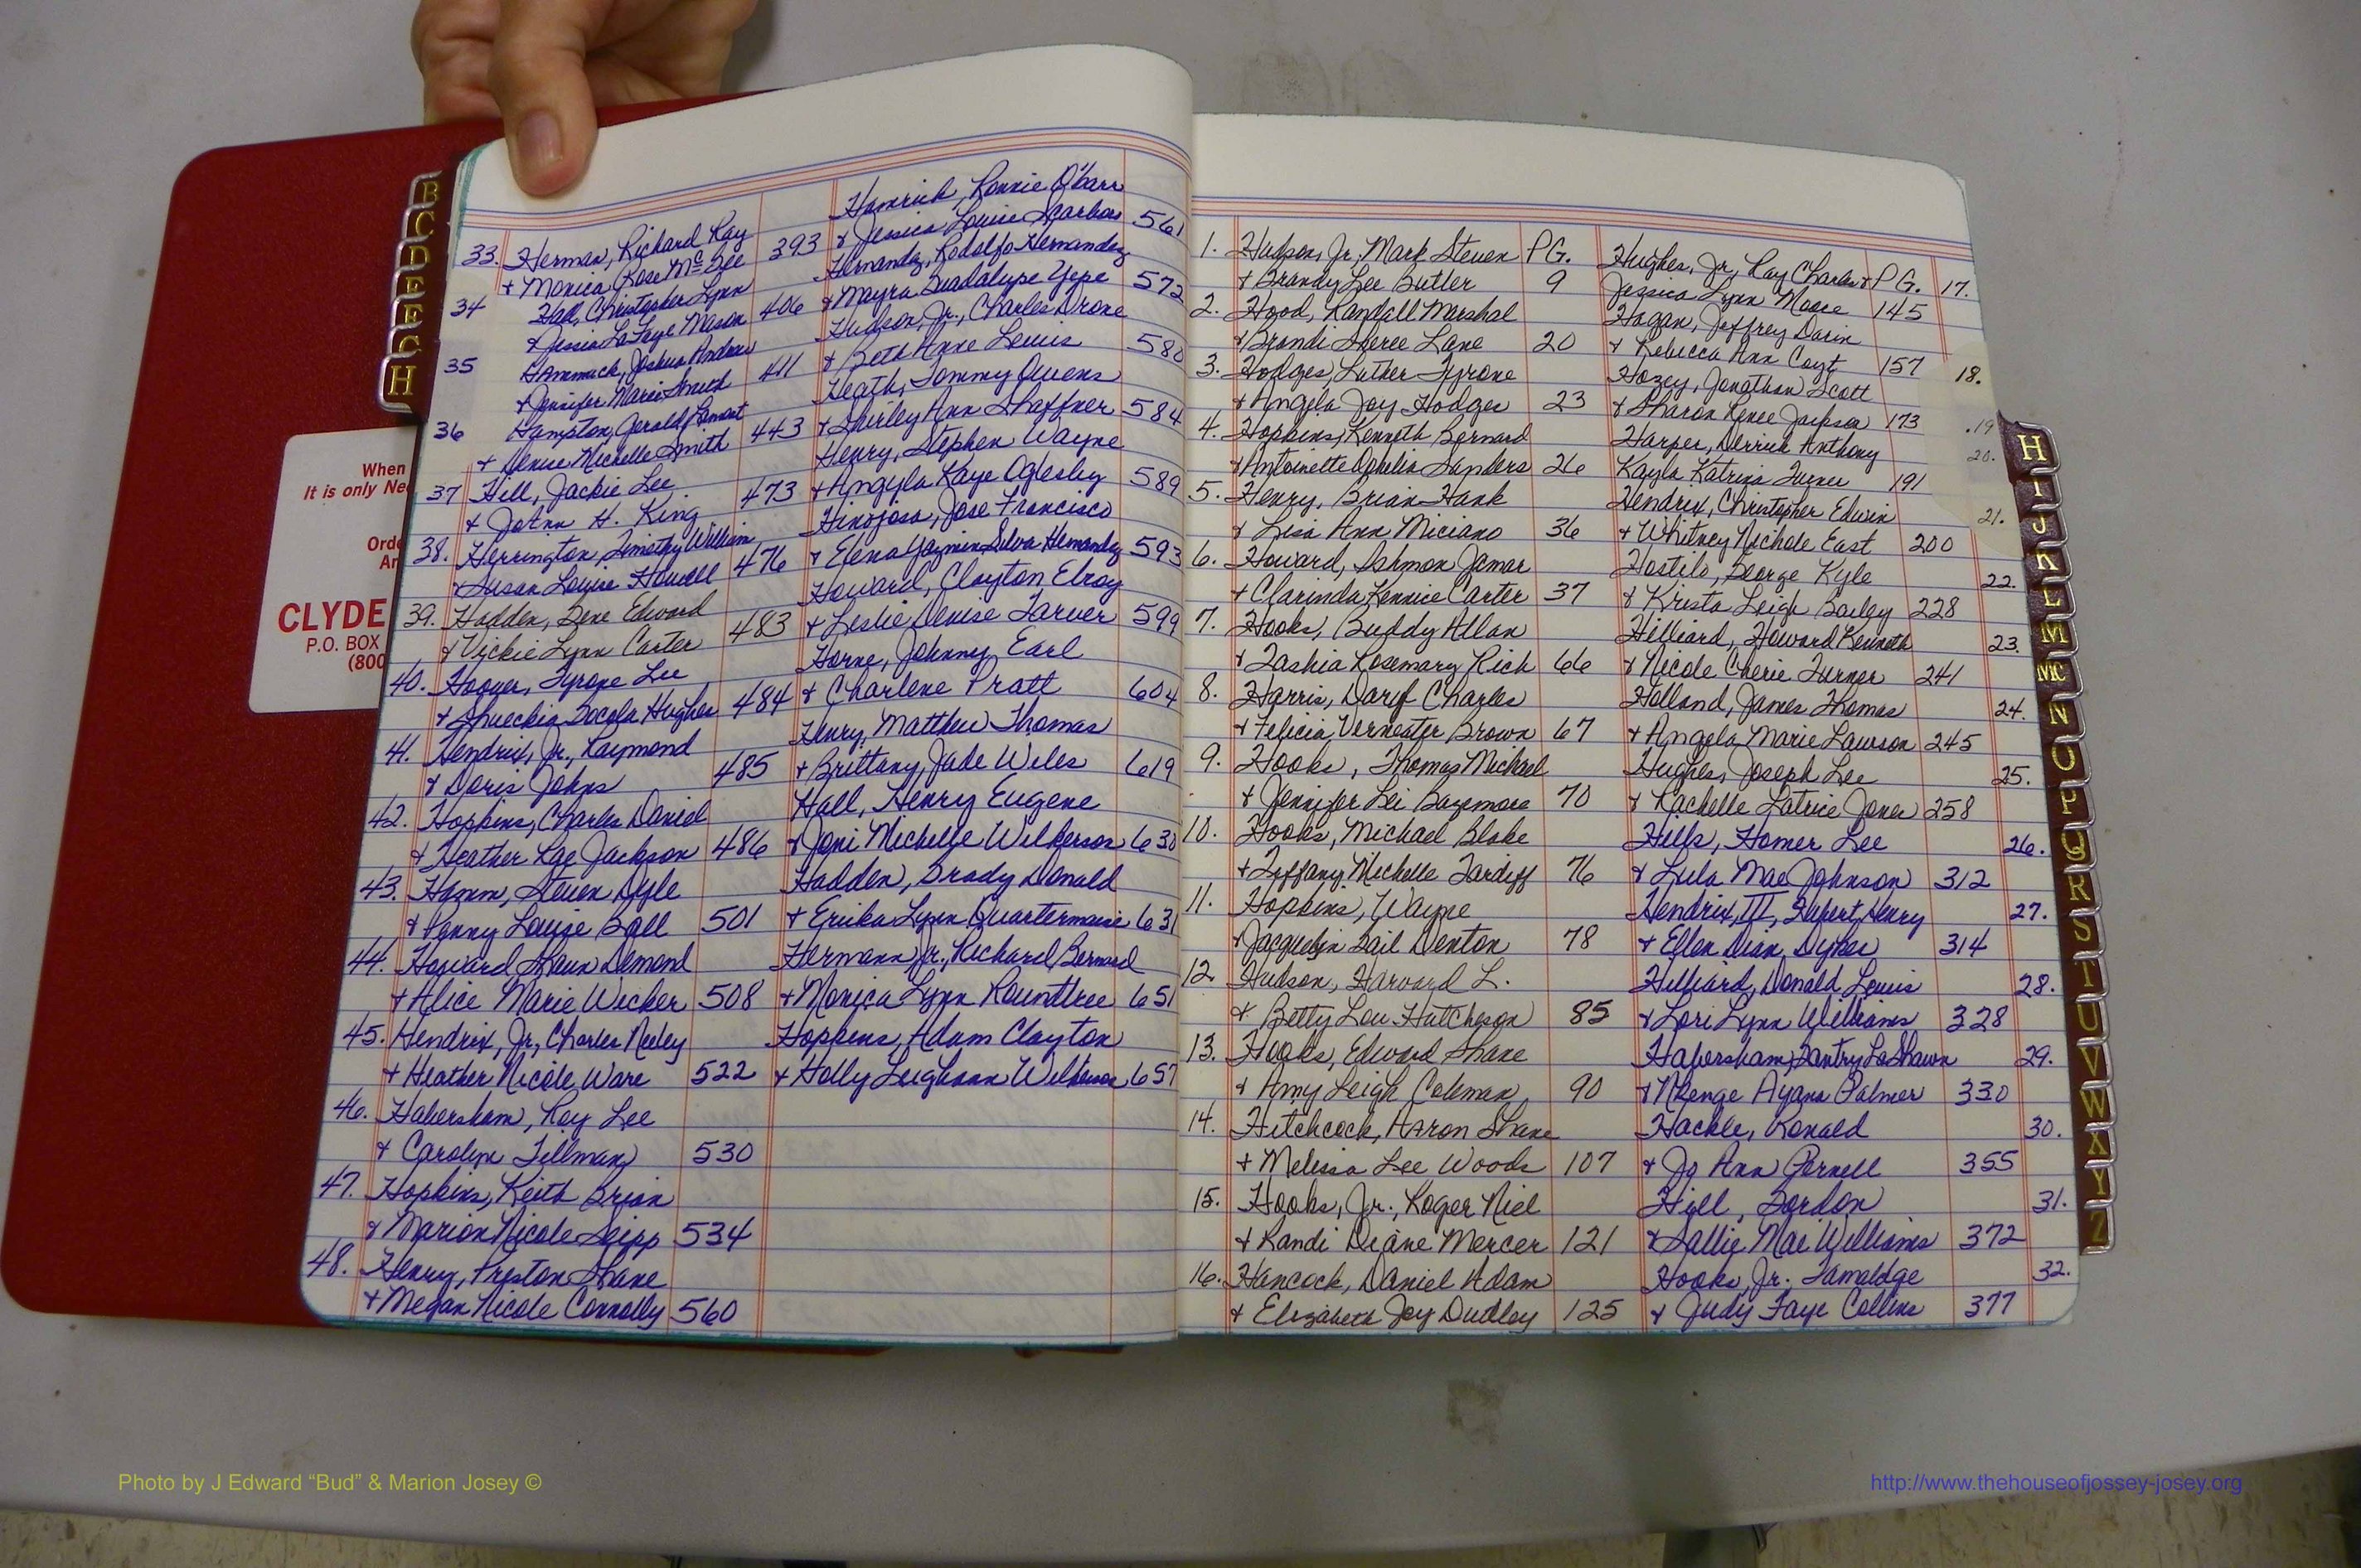 B
C
D
E
F
G
H
When
It is only Ne
Orde
An
CLYDE
P.O. BOX
(800
33. Herman, Richard Ray
+ Monica Rose McGee 393
34 Hall, Christopher Lynn
+ Jessica LaFaye Mason 406
35 Hammock, Joshua Andrew
+ Jennifer Marie Smith 411
36 Hampton, Gerald Lamont
+ Denise Michelle Smith 443
37 Hill, Jackie Lee
+ JoAnn H. King 473
38. Herrington, Timothy William
+ Susan Louise Howell 476
39. Hadden, Gene Edward
+ Vickie Lynn Carter 483
40. Hoover, Tyrone Lee
+ Shueckia Bocola Hughes 484
41. Hendrix, Jr., Raymond
+ Doris Johns 485
42. Hopkins, Charles Daniel
+ Heather Rae Jackson 486
43. Hamm, Steven Dyle
+ Penny Louise Ball 501
44. Howard Shaun Demond
+ Alice Marie Wicker 508
45. Hendrix, Jr, Charles Neeley
+ Heather Nicole Ware 522
46. Habersham, Roy Lee
+ Carolyn Tillman 530
47. Hopkins, Keith Brian
+ Marion Nicole Seipp 534
48. Henry, Preston Shane
+ Megan Nicole Connolly 560
Hamrick, Ronnie O'barr
+ Jessica Louise Scarboro 561
Hernandez, Rodolfo Hernandez
+ Mayra Guadalupe Yepe 572
Hudson, Jr., Charles Drone
+ Beth Anne Lewis 580
Heath, Tommy Owens
+ Shirley Ann Shaffner 584
Henry, Stephen Wayne
+ Angyla Kaye Oglesby 589
Hinojosa, Jose Francisco
+ Elena Yazmin Silva Hernandez 593
Howard, Clayton Elroy
+ Leslie Denise Tarver 599
Horne, Johnny Earl
+ Charlene Pratt 604
Henry, Matthew Thomas
+ Brittany Jade Wiles 619
Hall, Henry Eugene
+ Joni Michelle Wilkerson 630
Hadden, Brady Donald
+ Erika Lynn Quartermaine 631
Hermann Jr., Richard Bernard
+ Monica Lynn Rountree 651
Hopkins, Adam Clayton
+ Holly Leighann Wilkerson 657
1. Hudson, Jr, Mark Steven PG.
+ Brandy Lee Butler 9
2. Hood, Randall Marshal
+ Brandi Sheree Lane 20
3. Hodges, Luther Tyrone
+ Angela Joy Hodges 23
4. Hopkins, Kenneth Bernard
+ Antoinette Ophelia Sanders 26
5. Henry, Brian Hank
+ Lisa Ann Miciano 36
6. Howard, Ashmon Jamar
+ Clarinda Kennice Carter 37
7. Hooks, Buddy Allan
+ Tashia Rosemary Rich 66
8. Harris, Daryl Charles
+ Felicia Vernester Brown 67
9. Hooks, Thomas Michael
+ Jennifer Lei Bazemore 70
10. Hooks, Michael Blake
+ Tiffany Michelle Tardiff 76
11. Hopkins, Wayne
+ Jacquelin Gail Denton 78
12 Hudson, Harvard L.
+ Betty Lou Hutcheson 85
13. Hooks, Edward Shane
+ Amy Leigh Coleman 90
14. Hitchcock, Aaron Shane
+ Melissa Lee Woods 107
15. Hooks, Jr., Roger Niel
+ Randi Deane Mercer 121
16. Hancock, Daniel Adam
+ Elizabeth Joy Dudley 125
Hughes, Jr, Ray Charles + PG. 17.
Jessica Lynn Moore 145
Hogan, Jeffrey Darin
+ Rebecca Ann Coyt 157 18.
Hozey, Jonathan Scott
+ Sharon Renee Jackson 173 19
Harper, Derrick Anthony 20.
Kayla Katrina Turner 191
Hendrix, Christopher Edwin 21.
+ Whitney Nichole East 200
Hostilo, George Kyle 22.
+ Krista Leigh Bailey 228
Hilliard, Howard Kenneth 23.
+ Nicole Cherie Turner 241
Holland, James Thomas 24.
+ Angela Marie Lawson 245
Hughes, Joseph Lee 25.
+ Rachelle Latrice Jones 258
Hells, Homer Lee 26.
+ Lula Mae Johnson 312
Hendrix, III, Hubert Henry 27.
+ Ellen Dian Dykes 314
Hilliard, Donald Lewis 28.
+ Lori Lynn Williams 328
Habersham, Bantry LaShawn 29.
+ Nkenge Ayana Palmer 330
Hackle, Ronald 30.
+ Jo Ann Pernell 355
Hill, Gordon 31.
+ Sallie Mae Williams 372
Hooks, Jr. Tamaldge 32.
+ Judy Faye Collins 377
H
I
J
K
L
M
MC
N
O
P
Q
R
S
T
U
V
W
X
Y
Z
Photo by J Edward “Bud” & Marion Josey ©
http://www.thehouseofjossey-josey.org